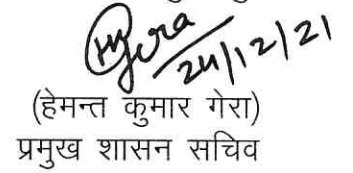 Gera
24/12/21
(हेमन्त कुमार गेरा)
प्रमुख शासन सचिव